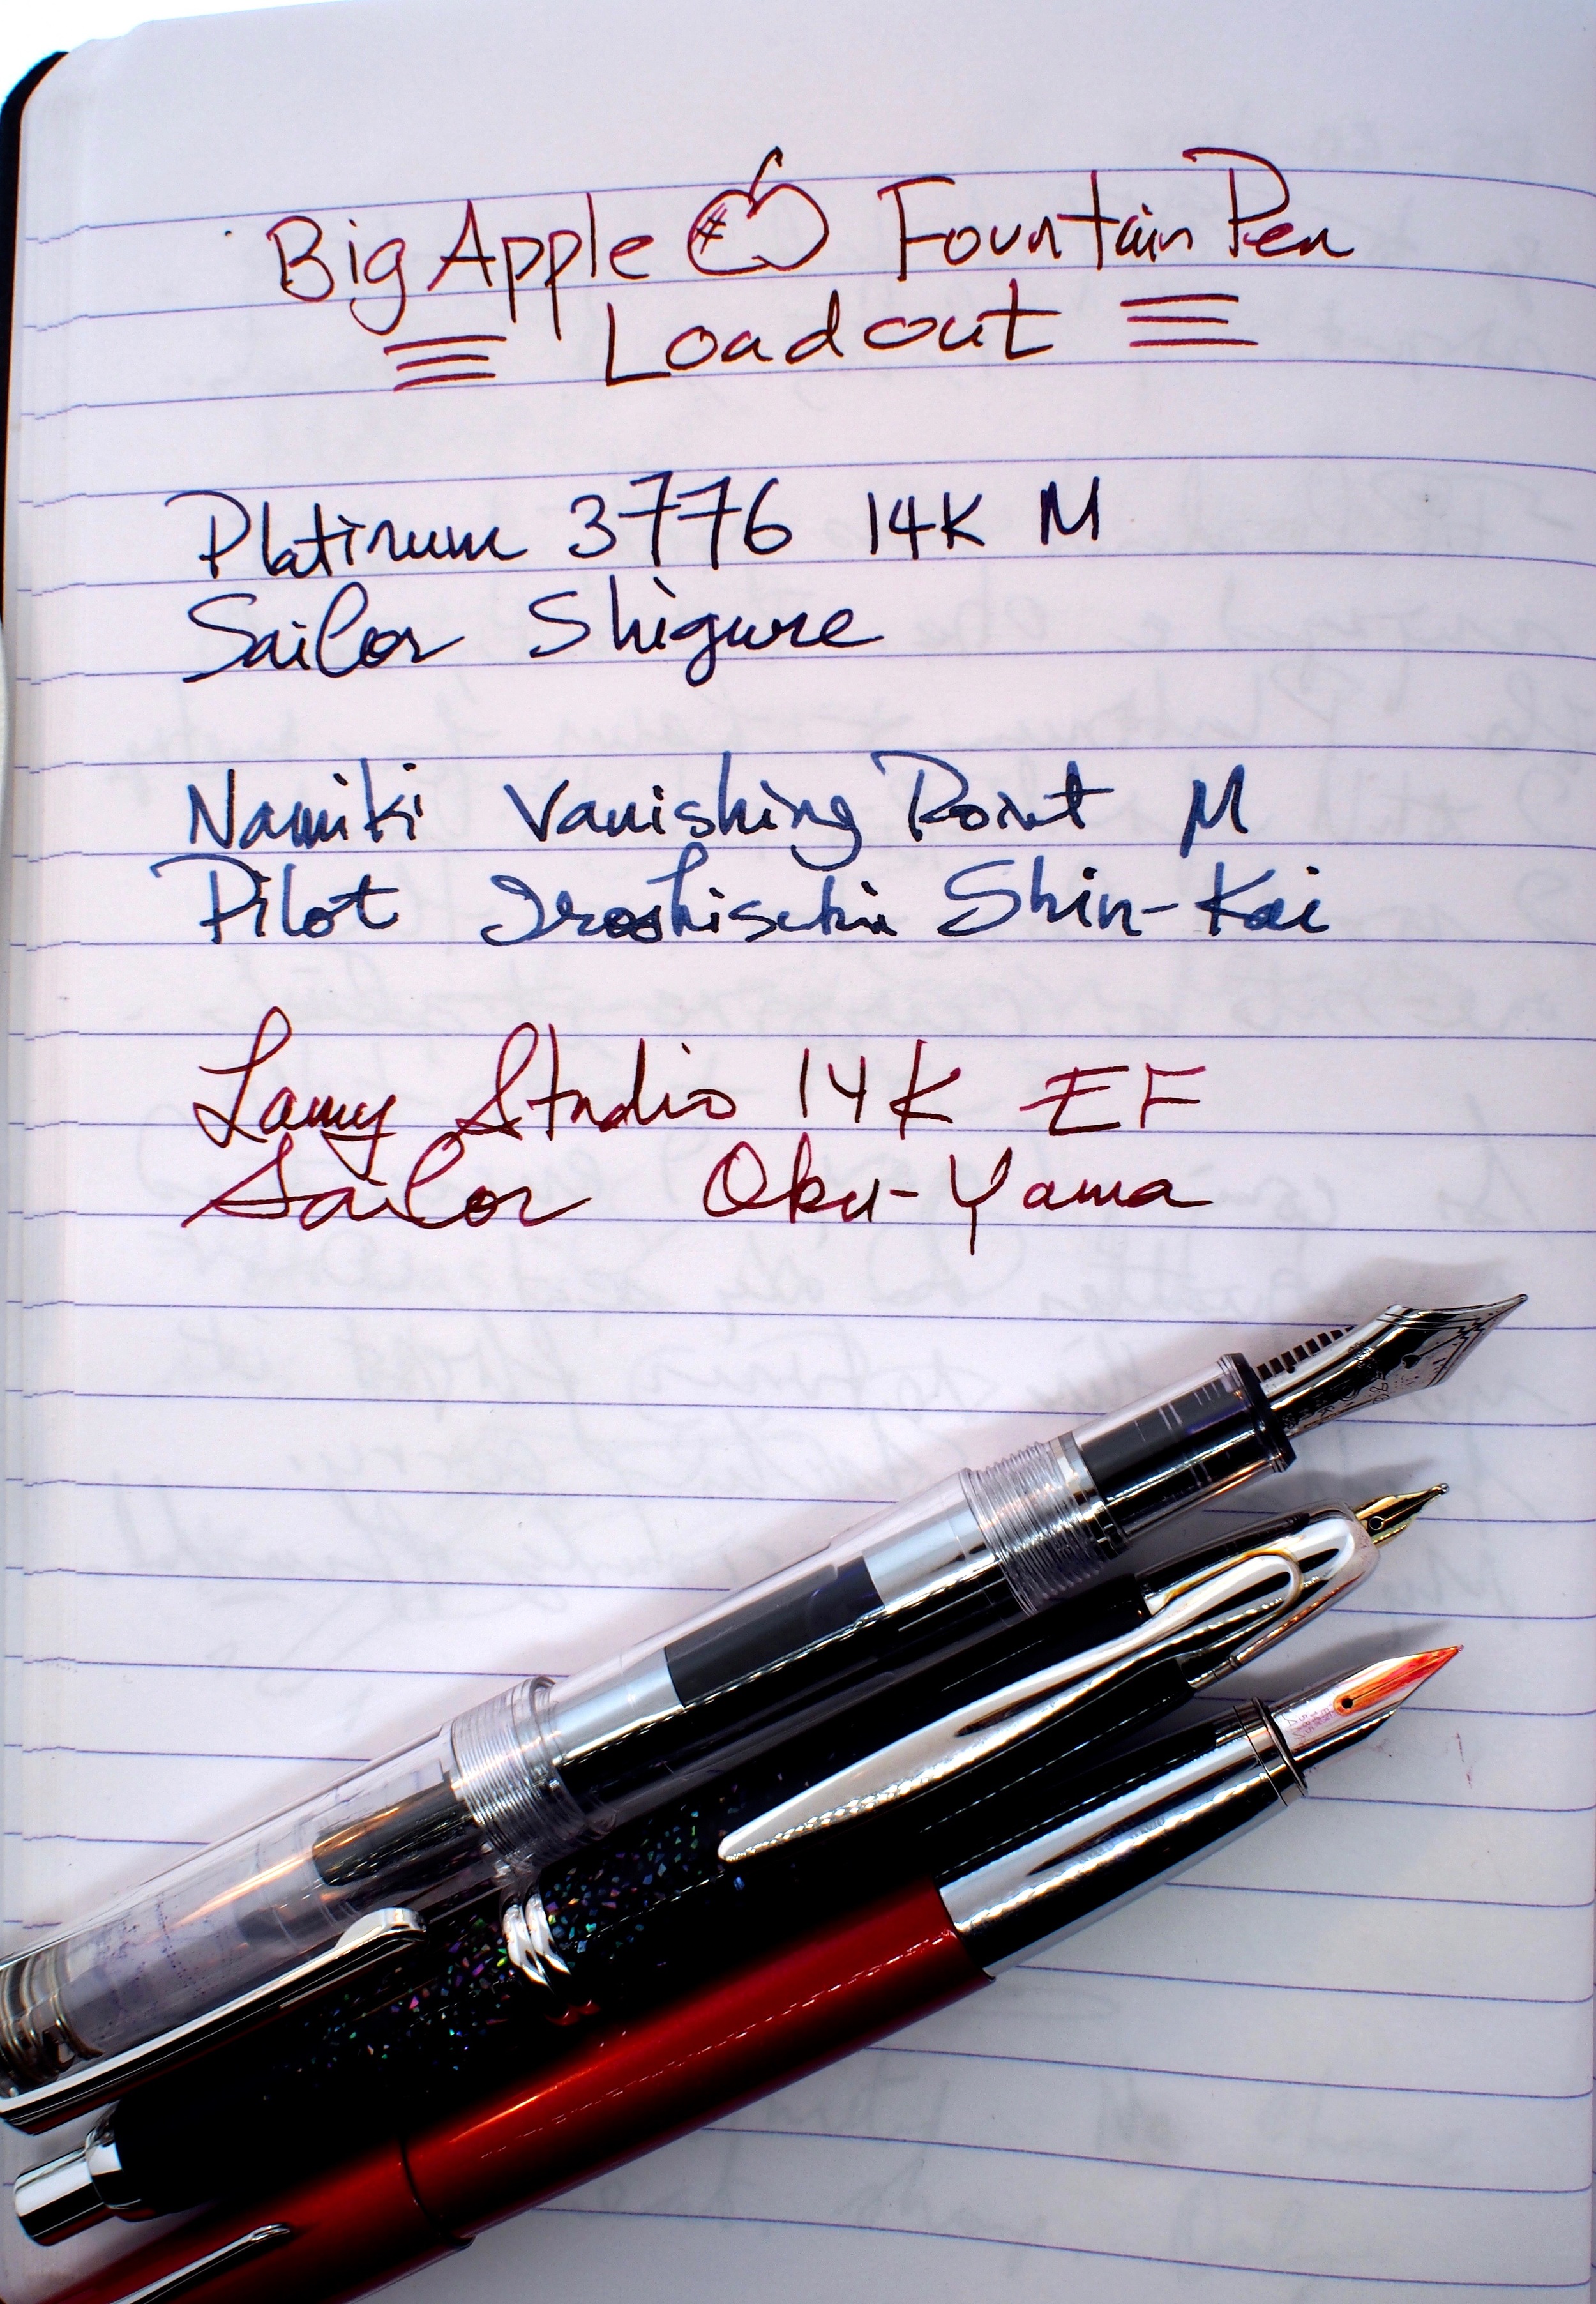 Big Apple Fountain Pen
Loadout
Platinum 3776 14K M
Sailor Shigure
Namiki Vanishing Point M
Pilot Iroshischi Shin-Kai
Lamy Studio 14K EF
Sailor Oku-Yama